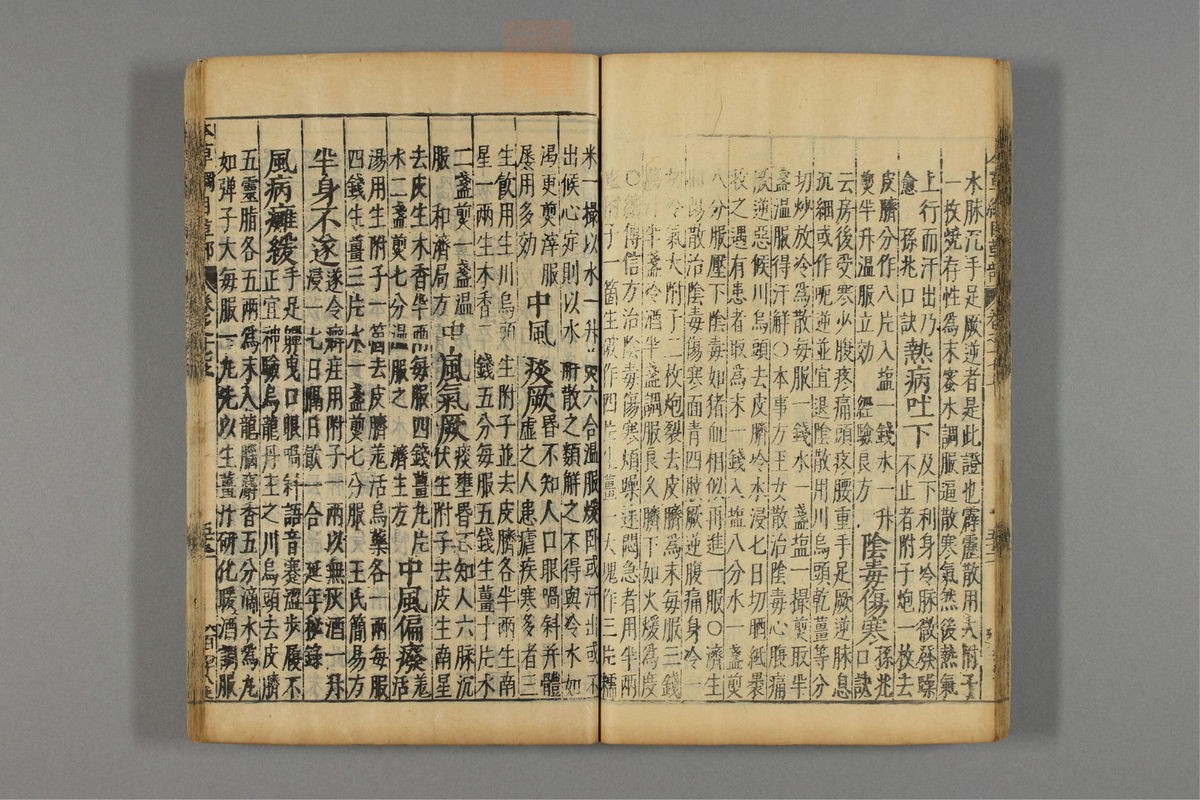 水脉沉手足厥逆者是此證也霹靂散用大附子
一枚燒存性爲末蜜水調服逼散寒氣然後熱氣
上行而汗出乃愈
孫兆口訣 熱病吐下 及下利身冷脉微發躁不止者附子炮一枚去
皮臍分作八片入鹽一錢水一升
煑半升温服立效 經驗良方 陰毒傷寒 孫兆口訣
云房後受寒少腹疼痛頭疼腰重手足厥逆脉息
沉細或作呃逆並宜退陰散用川烏頭乾薑等分
切炒放冷爲散每服一錢水一盞鹽一撮煎取半
盞温服得汗解○本事方玉女散治陰毒心腹痛
厥逆惡候川烏頭去皮臍冷水浸七日切晒紙裹
收之遇有患者取爲末一錢入鹽八分水一盞煎
八分服壓下陰毒如猪血相似再進一服○濟生
回陽散治陰毒傷寒面青四肢厥逆腹痛身冷一
切冷氣大附子二枚炮裂去皮臍爲末每服三錢
薑汁半盞冷酒半盞調服良久臍下如火煖爲度
○續傳信方治陰毒傷寒煩躁迷悶急者用半兩
附子一箇生破作四片生薑一大塊作三片糯
米一撮以水一升煎六合温服煖卧或汗出或不
出候心定則以水解散之類解之不得與冷水如
渴更煎滓服
屡用多效 中風痰厥 昏不知人口眼喎斜并體虛之人患瘧疾寒多者三
生飲用生川烏頭生附子並去皮臍各半兩生南
星一兩生木香二錢五分每服五錢生薑十片水
二盞煎一盞温
服 和濟局方 中風氣厥 痰壅昏不知人六脉沉伏生附子去皮生南星
去皮生木香半兩每服四錢薑九片
水二盞煎七分温服之 濟生方 中風偏廢 羌活
湯用生附子一箇去皮臍羌活烏藥各一兩每服
四錢生薑三片水一盞煎七分服 王氏簡易方
半身不遂 遂令癖疰用附子一兩以無灰酒一升浸一七日隔日飲一合 延年秘錄
風病癱緩 手足嚲曳口眼喎斜語音蹇澀步履不正宜神驗烏龍丹主之川烏頭去皮臍
五靈脂各五兩爲末入龍腦麝香五分滴水爲丸
如彈子大每服一丸先以生薑汁研化暖酒調服